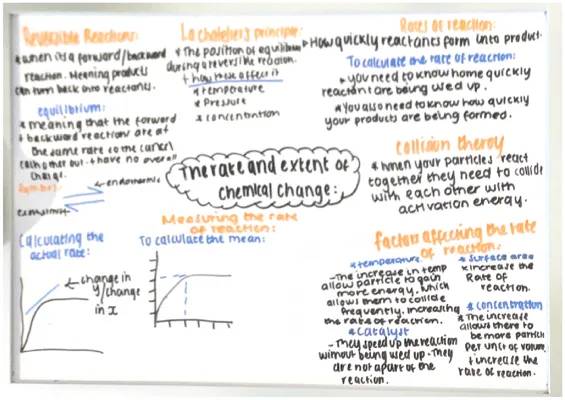 Reversible Reactions:
* when its a forward/backward
reaction. Meaning products
can turn back into reactants.
equilibrium:
* meaning that the forward
+ backward reaction are at
the same rate so the cancel
each other out + have no overall
change.
Symbol:
endothermic
exothermic
La chatelier's principle:
* The position of equilibrium
during a reversible reaction.
+ how these affect it
* temperature
* Pressure
* concentration
Rates of reaction:
* How quickly reactants form into product.
To calculate the rate of reaction:
* you need to know home quickly
reactant are being used up.
* You also need to know how quickly
your products are being formed.
Collision theroy
* when your particles react
together they need to collide
with each other with
activation energy.
The rate and extent of
chemical change:
Calculating the
actual rate:
change in
y/change
in x
Measuring the rate
of reaction:
To calculate the mean:
Factors affecting the rate
of reaction:
* temperature
- The increase in temp
allow particle to gain
more energy, which
allows them to collide
frequently, increasing
the rate of reaction.
* Catalyst
- They speed up the reaction
without being used up - They
are not apart of the
reaction.
* Surface area
* increase the
Rate of
reaction.
* concentration
* The increase
allows there to
be more particle
per unit of volume
+ increase the
rate of reaction.